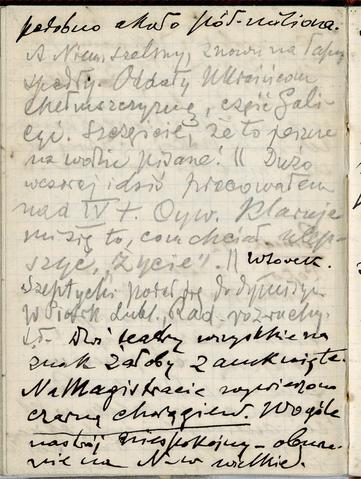 podobno około pół-miliona.
A Niem. szelmy, znowu na łapy
spadły. Oddały Ukraińcom
Chełmszczyznę, część Gali-
cyi. Szczęście, że to jeszcze
na wodzie pisane! || Dużo
wczoraj i dziś pracowałem
nad IV t. Cyw. Klaruje
mi się to, com chciał ulep-
szyć, "Życie". || Wtorek.
Szeptycki podał się do dymisyi.
W Piotrk. Lubl., Rad. rozruchy.
Dziś teatry wszystkie na
znak żałoby zamknięte.
Na Magistracie wywieszono
czarną chorągiew. Wogóle
nastrój niespokojny – oburze-
nie na N-ów wielkie.